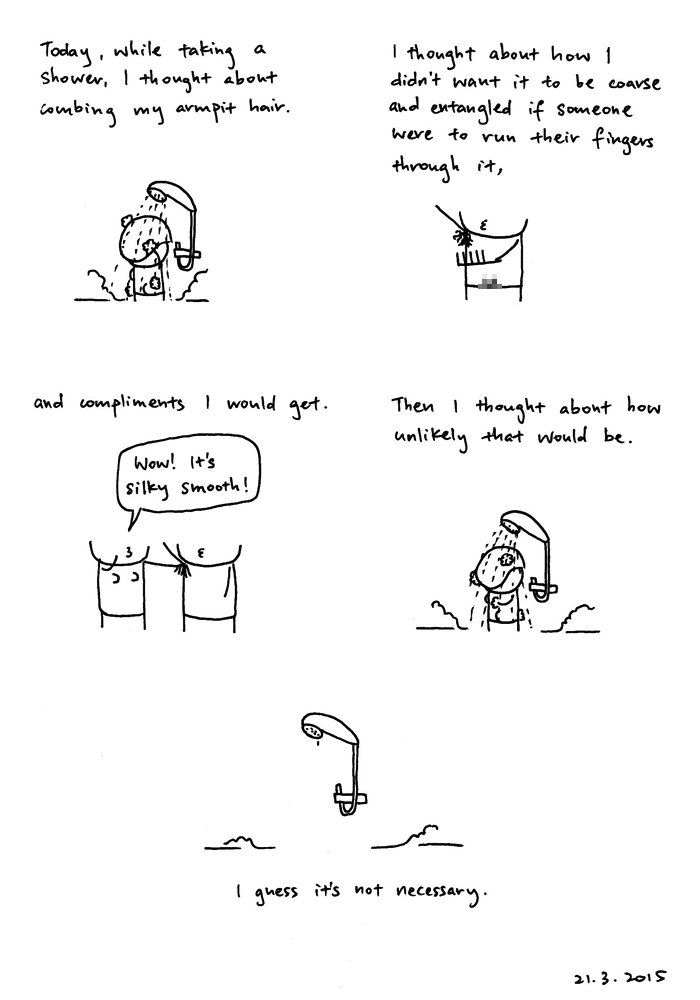 Today, while taking a
shower, I thought about
combing my armpit hair.
I thought about how I
didn't want it to be coarse
and entangled if someone
were to run their fingers
through it,
and compliments I would get.
Wow! It's
silky smooth!
Then I thought about how
unlikely that would be.
I guess it's not necessary.
21.3.2015